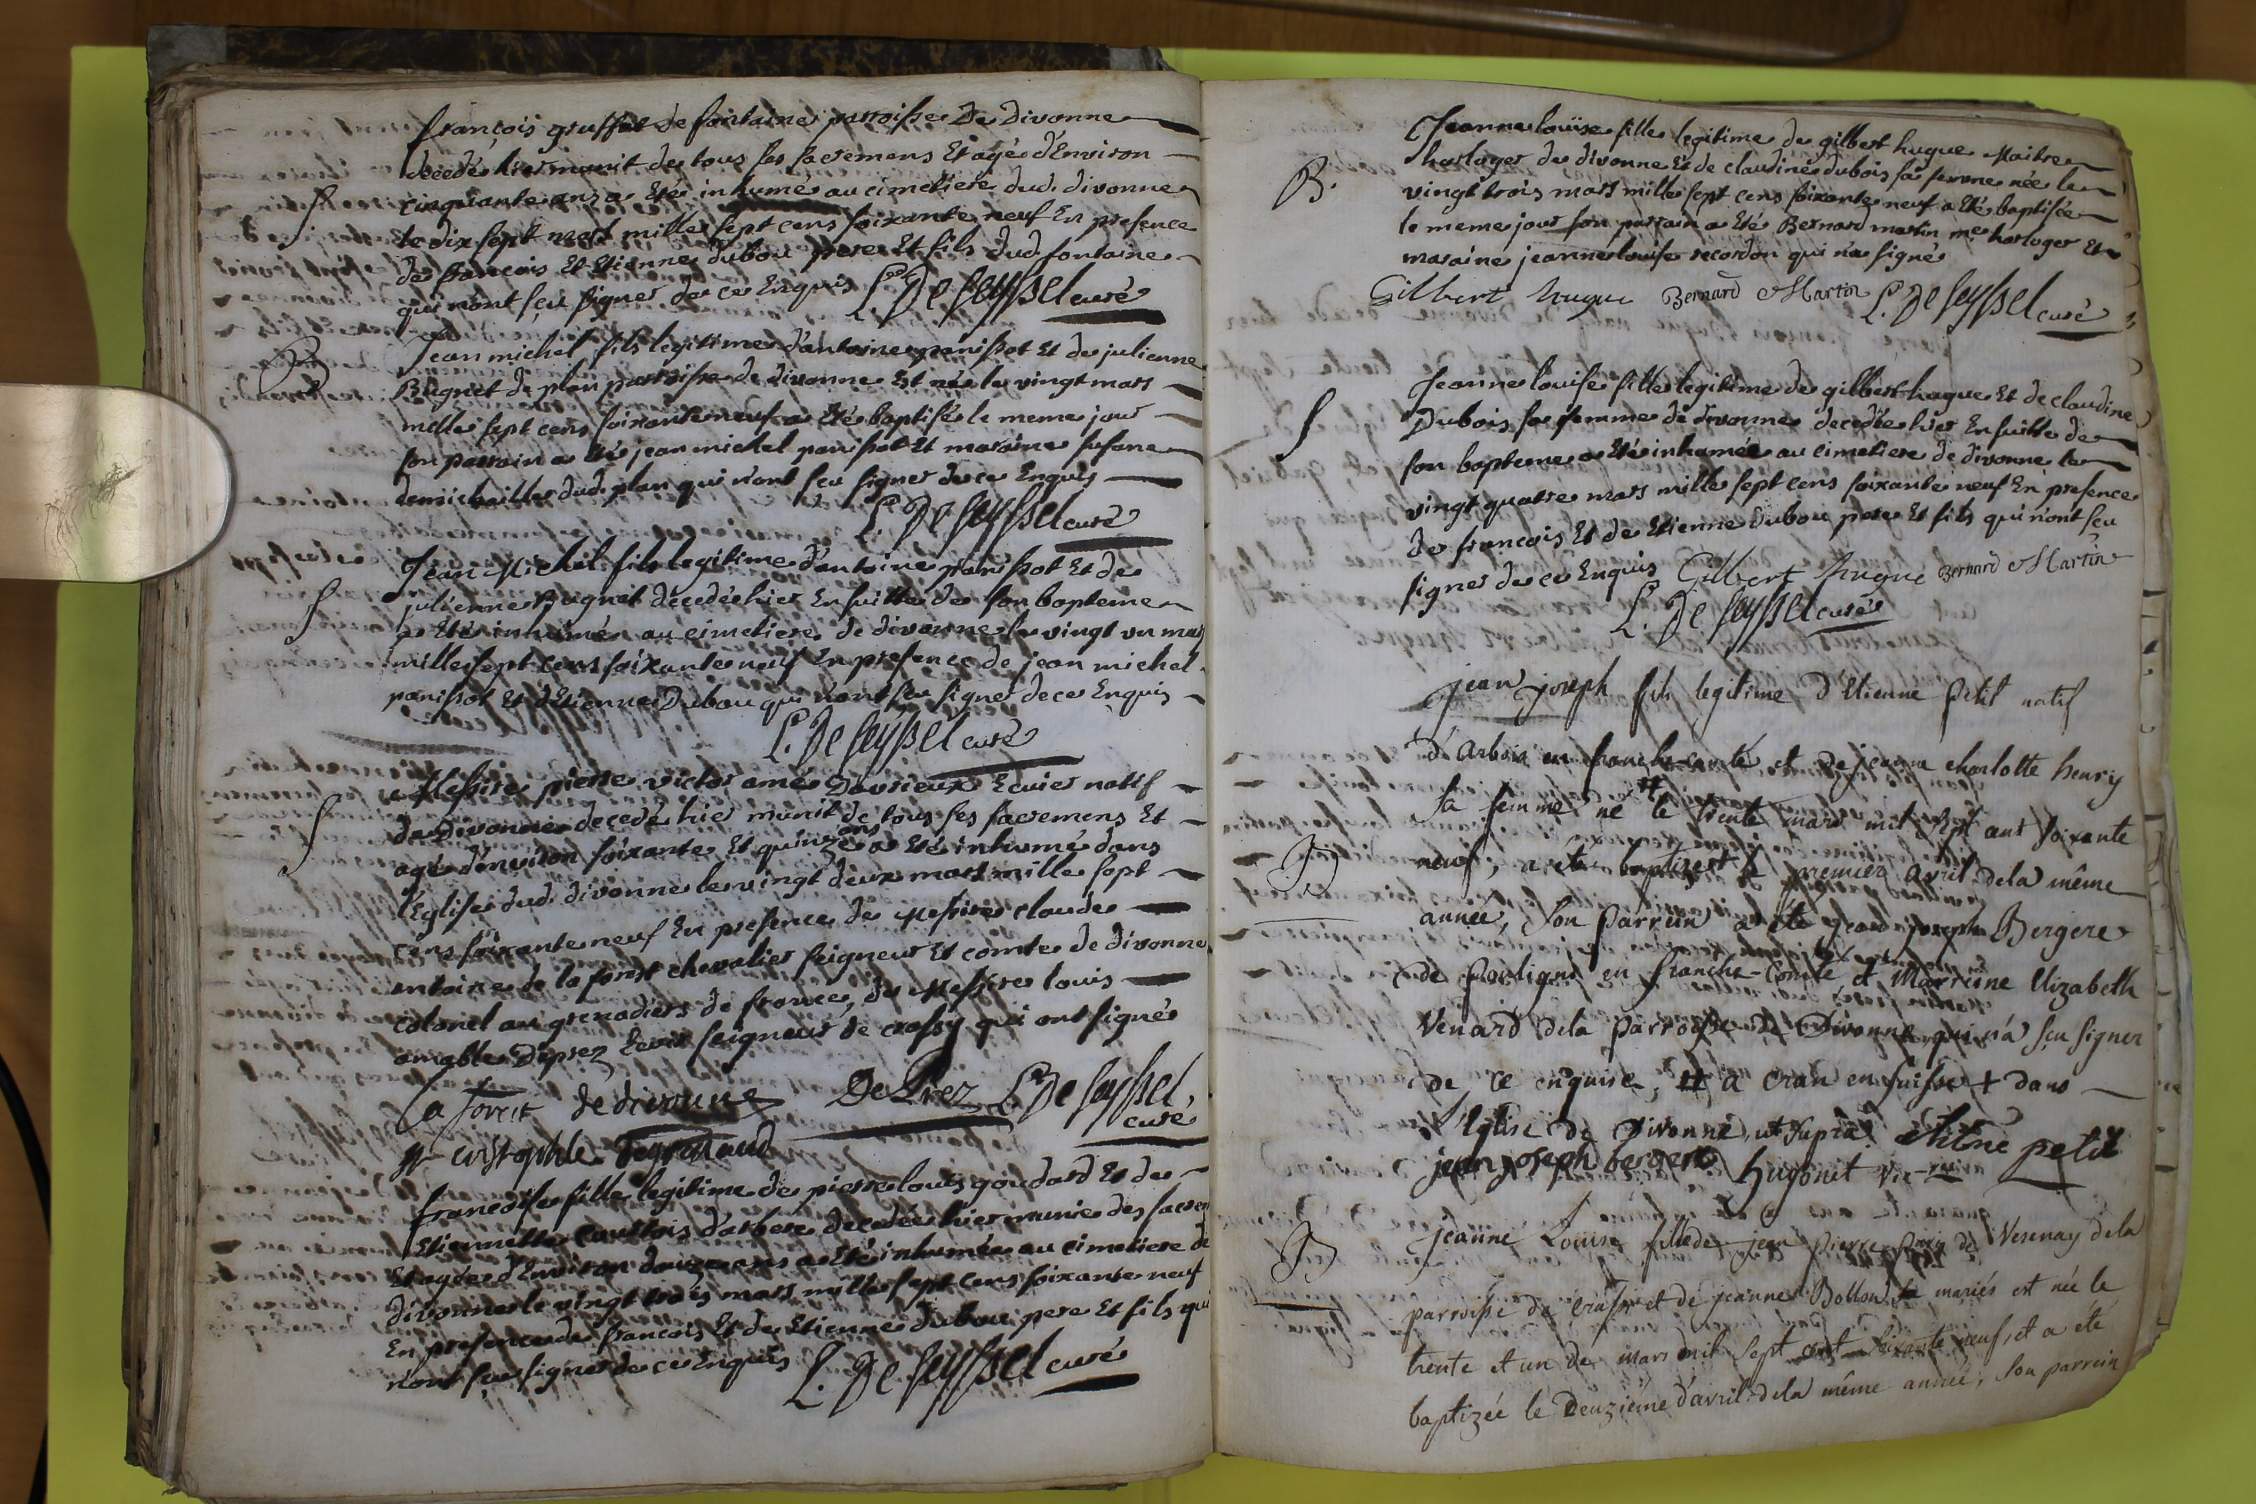 françois gruffat de fontaine parroisse De divonne
decedé hier munit de tous ses sacremens Et agé d'Environ
S cinquante ans a Eté inhumé au cimetiere dud. divonne
le dix sept mars mille sept cens soixante neuf En presence
de françois Et Etienne dubou pere Et fils dud fontaine
qui n'ont sçu signer de ce Enquis L. De Seyssel curé
B Jean michel fils legitime d'antoine panissot Et de julienne
Bugnet de plan parroisse de divonne Est née le vingt mars
mille sept cens soixante neuf a Eté baptisé le meme jour
son parrain a Eté jean michel panissot Et maraine susane
demichaille dud. plan qui n'ont sçu signer de ce Enquis
L. De Seyssel curé
Jean Michel fils legitime d'antoine panissot Et de
S julienne Bugnet decedé hier En suitte de son bapteme
a Eté inhumé au cimetiere de divonne le vingt un mars
mille sept cens soixante neuf En presence de jean michel
panissot Et d'Etienne Dubou qui n'ont sçu signer de ce Enquis
L. De Seyssel curé
Messire pierre victor amé Davrieux Ecuier natif
S de Divonne decedé hier munit de tous ses sacremens Et
agé d'environ soixante Et quinze ans a Eté inhumé dans
l'Eglise dud. divonne le vingt deux mars mille sept
cens soixante neuf En presence de Messire claude
antoine de la forest chevalier seigneur Et comte de divonne
colonel au grenadiers de france, de Messire louis
amable Deprez seigneur de crassy qui ont signés
La forest de divonne De Prez L. De Seyssel,
curé
francoise fille legitime de pierre louis goudard Et de
Etiennette d'arbere decedée hier munie des sacrem
Et agée d'Environ douze ans a Eté inhumée au cimetiere de
divonne le vingt trois mars mille sept cens soixante neuf
En presence de francois Et de Etienne dubou pere Et fils qui
n'ont sçu signer de ce Enquis L. De Seyssel curé
Jeanne louise fille legitime de gilbert hugue Maitre
B. horloger de divonne Et de claudine dubois sa femme née le
vingt trois mars mille sept cens soixante neuf a Eté baptisée
le meme jour son parrain a Eté Bernard martin me horloger Et
maraine jeanne louise recordon qui n'a signé
Gilbert hugue Bernard Martin L. De Seyssel curé
Jeanne louise fille legitime de gilbert hugue Et de claudine
S Dubois sa femme de divonne decedée hier En suitte de
son bapteme a Eté inhumée au cimetiere de divonne le
vingt quatre mars mille sept cens soixante neuf En presence
de françois Et de Etienne Dubou pere Et fils qui n'ont sçu
signer de ce Enquis Gilbert hugue Bernard Martin
L. De Seyssel curé
jean joseph fils legitime d'Etienne petit natif
d'Arbois en franche-comté et de jeanne charlotte henry
sa femme né # le trente mars mil sept ant soixante
B neuf, a été baptisé + le premier avril dela même
année, son parrein a été jean joseph Bergere
de Pouligni en franche-Comté et Marreine Elizabeth
Venard dela Parroisse de Divonne qui n'a sçu signer
de ce enquise, # a cran en suisse + dans
l'Eglise de Divonne, ut supra. etiéne petit
jean joseph bergere hugonet vic-re
B jeanne Louise fille de jean pierre de Vesenay dela
parroisse de Crassi et de jeanne Bollon mariés est née le
trente et un de mars mil sept cent soixante neuf, et a été
baptizée le Deuzième d'avril dela même année, son parrein